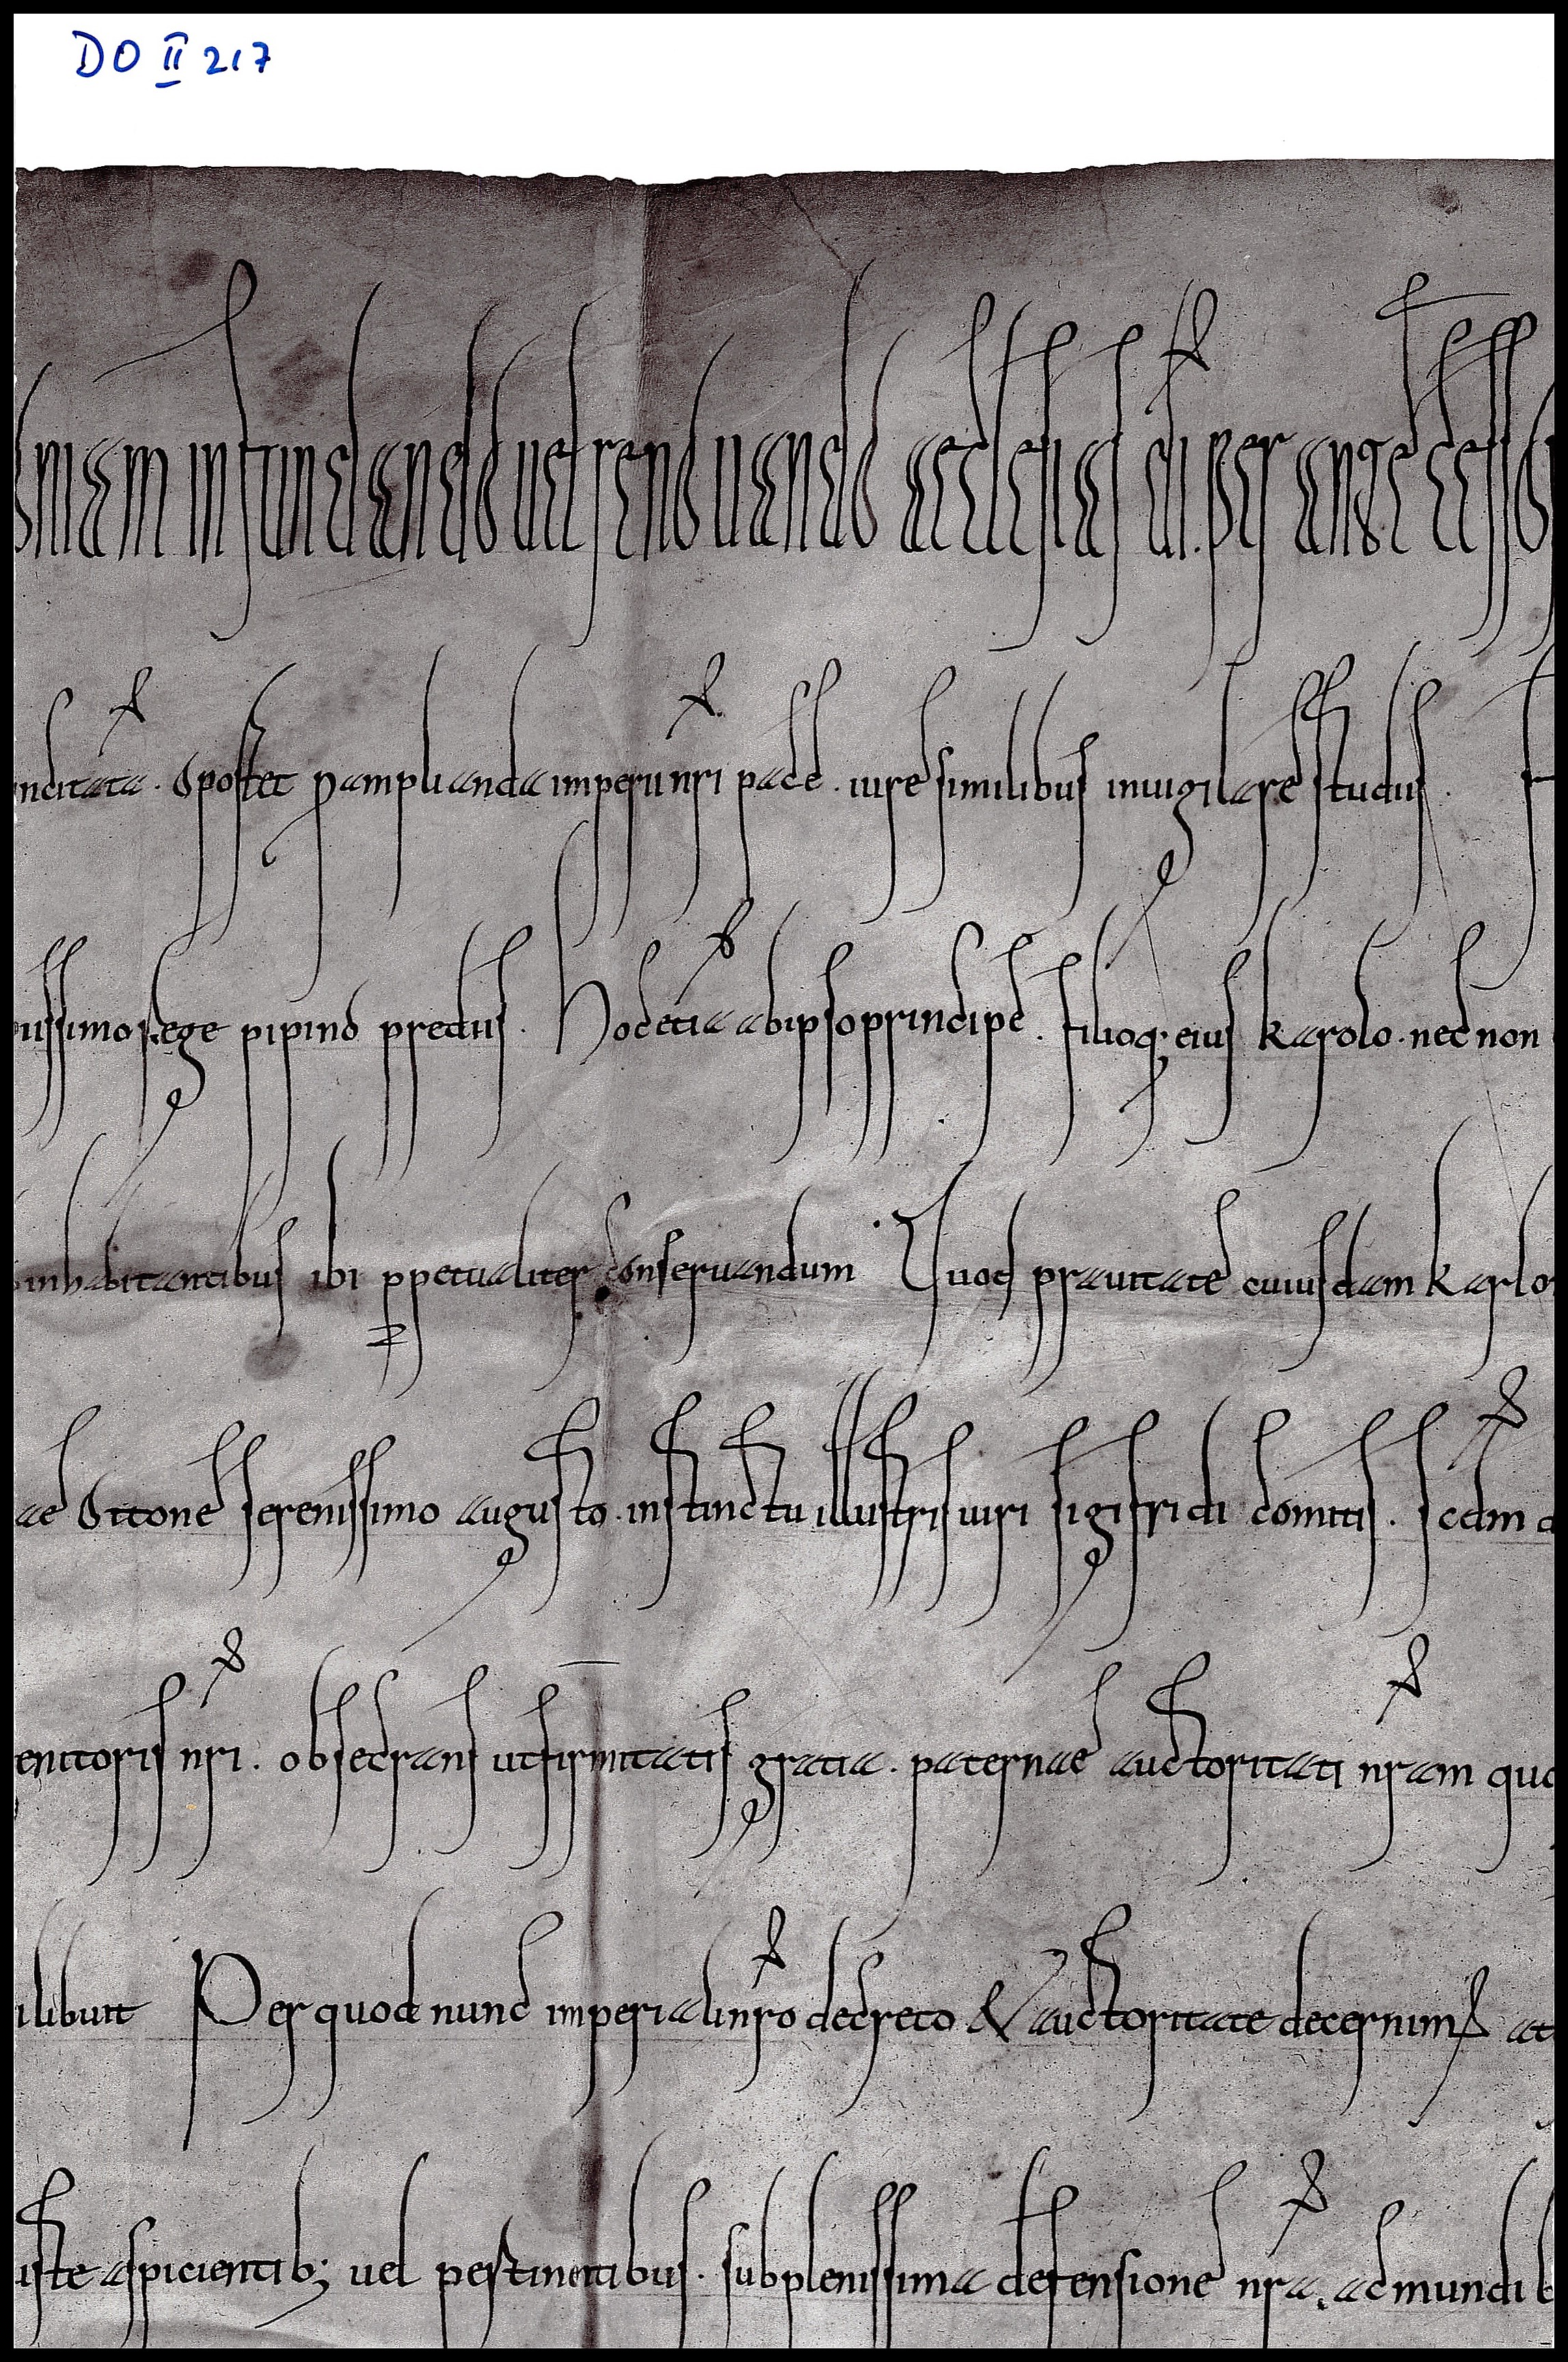 DO II 217
niam in fundando vel renovando aecclesias di. per antecesso
ndita ta. oportet pamplianda imperii nri pace. iure similibus invigilare studiis.
issimo rege pipino preciis. Hoc etia ab ipso principe. filioq; eius karolo. nec non
inhabitantibus ibi ppetualiter conservandum Quod pravitate cuiusdam Karlo
ae Ottone serenissimo augusto. instinctu illustris viri sigifridi comitis. scdm
enitoris nri. obsecrans ut firmitatis gratia. paternae auctoritati nram quo
ilibuit Per quod nunc imperiali nro decreto & auctoritate decernim at
iste aspicientib; vel pertinentibus. sub plenissima defensione nra. ac mundib